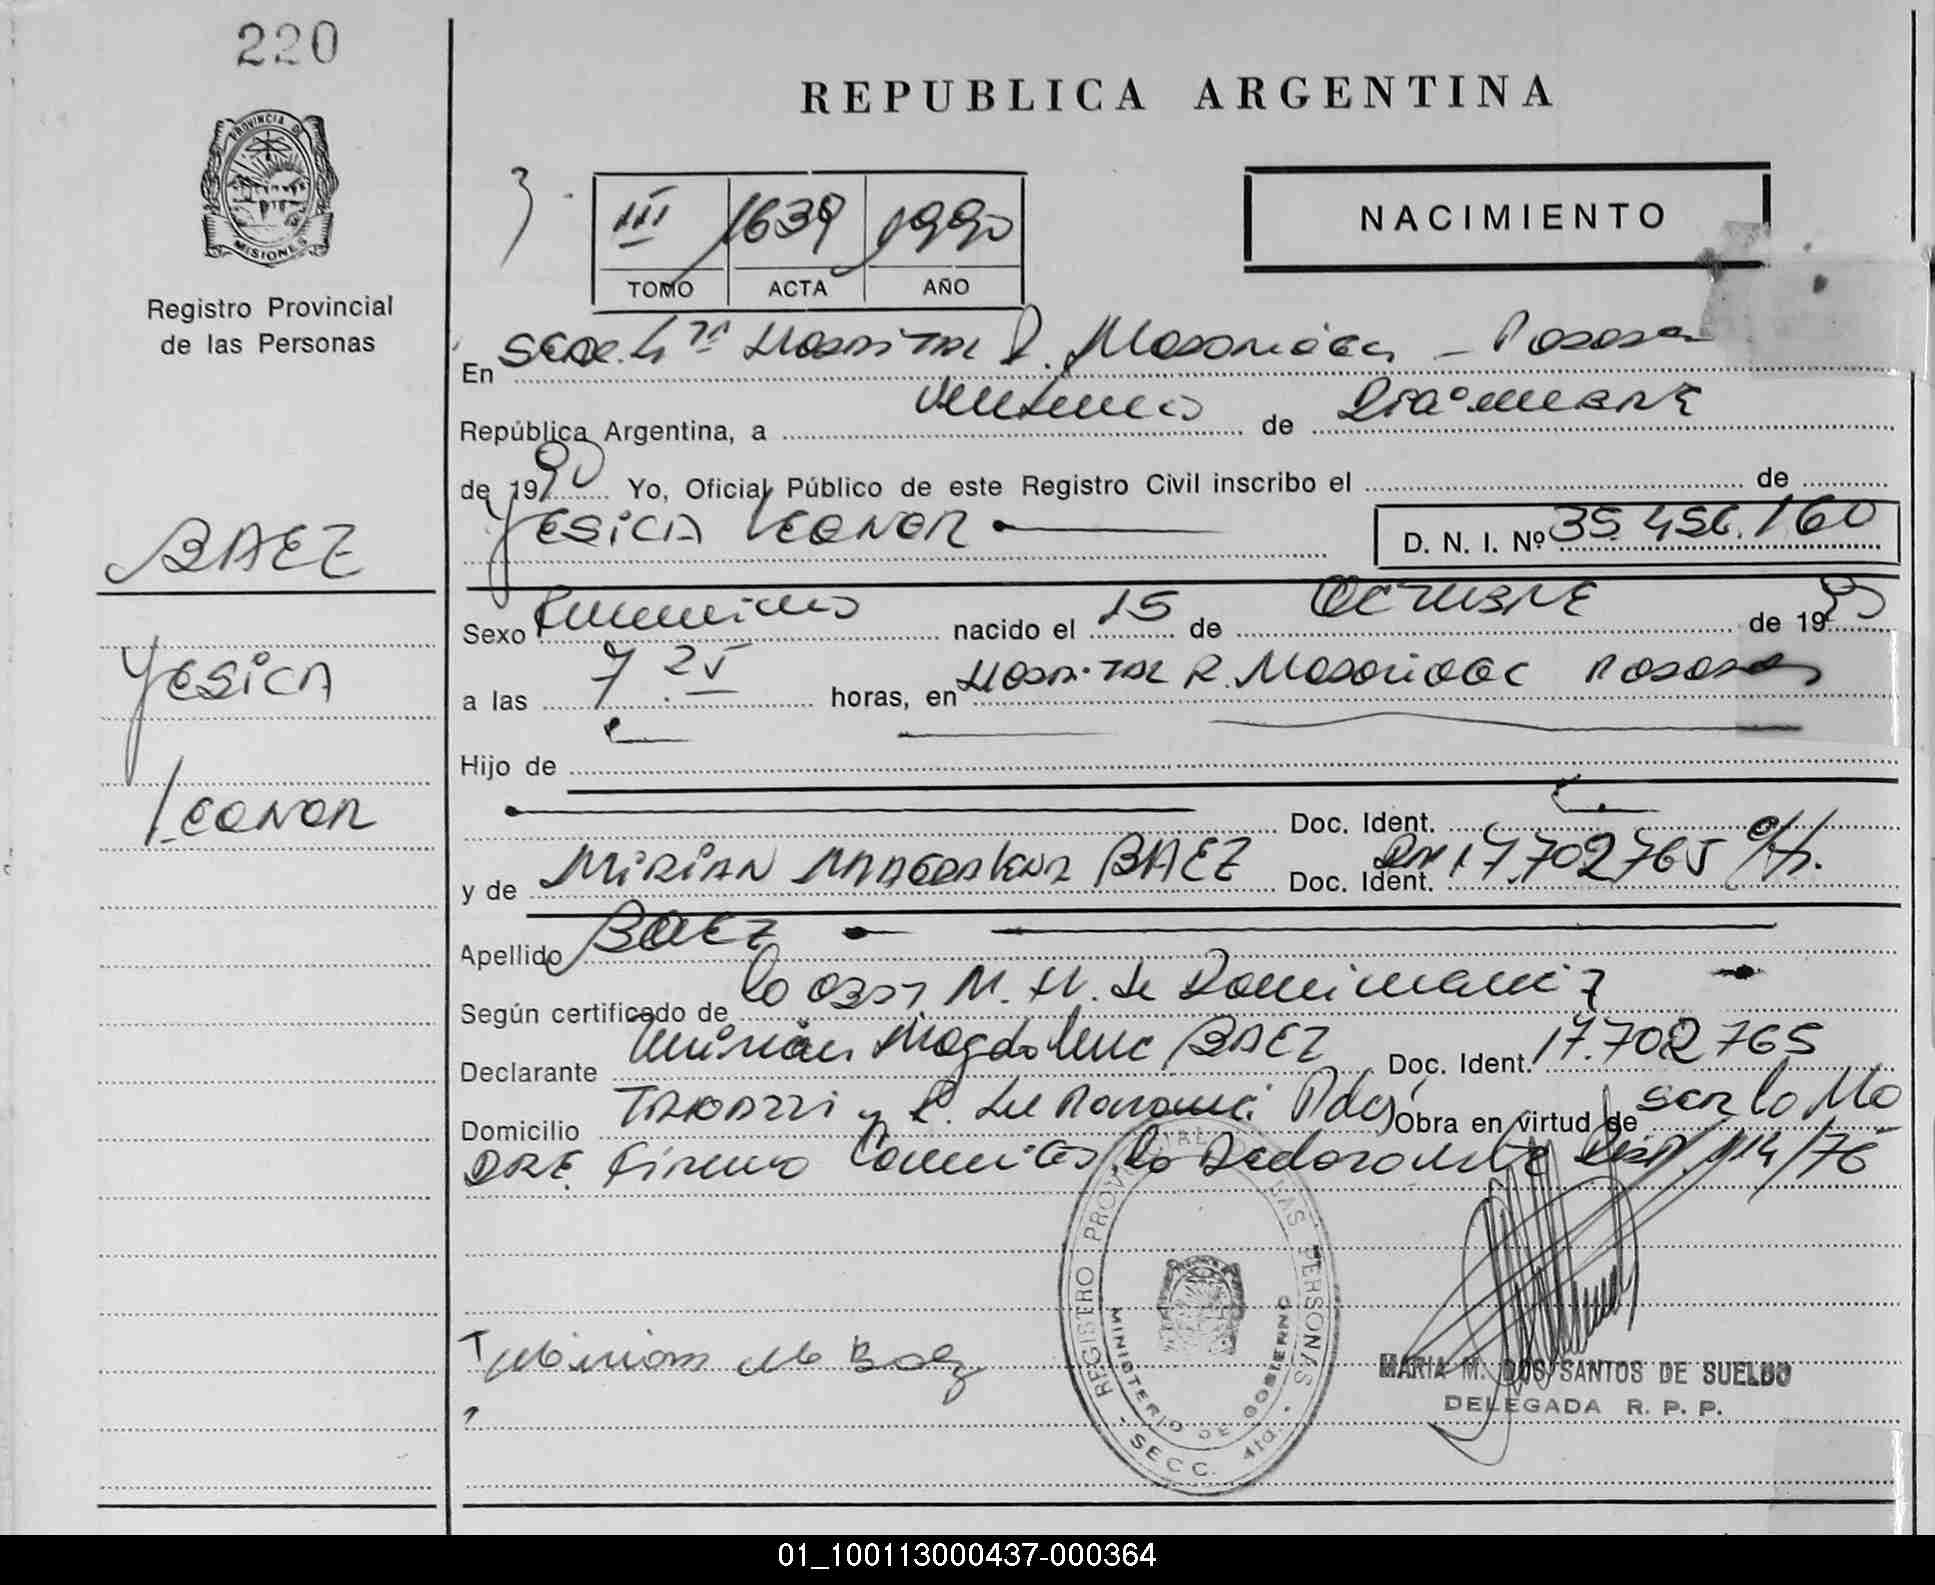 220
PROVINCIA DE
MISIONES
Registro Provincial
de las Personas
BAEZ
YESICA
LEONOR
REPUBLICA ARGENTINA
3.
III 1639 1990
TOMO ACTA AÑO
NACIMIENTO
En Secc. 4ta Hospital R. Madariaga - Posadas
República Argentina, a de Diciembre
de 1990 Yo, Oficial Público de este Registro Civil inscribo el de
YESICA LEONOR
D. N. I. Nº 35.456.160
Sexo Femenino nacido el 15 de OCTUBRE de 1990
a las 7.25 horas, en Hospital R. Madariaga Posadas
Hijo de
Doc. Ident.
y de MIRIAN MAGDALENA BAEZ Doc. Ident. DNI 17.702765
Apellido BAEZ
Según certificado de la Obst. M. H. de
Declarante Mirian Magdalena BAEZ Doc. Ident. 17.702765
Domicilio y Obra en virtud de ser la Ma
DRE. Firma la Declarante 114/76
Mirian M Baez
REGISTRO PROVINCIAL DE LAS PERSONAS
MINISTERIO DE GOBIERNO
- SECC. 4ta. -
MARIA M. DOS SANTOS DE SUELDO
DELEGADA R. P. P.
01_100113000437-000364